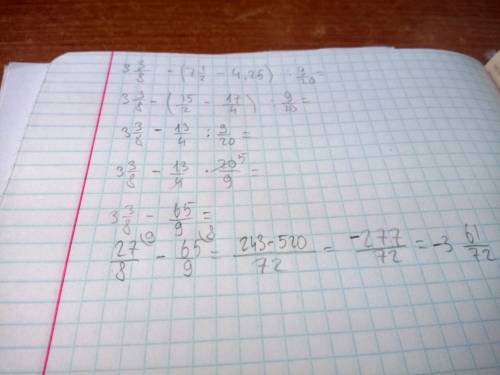 3 3/8 - (7 1/2 - 4,25) : 9/20 =
3 3/8 - (15/2 - 17/4) : 9/20 =
3 3/8 - 13/4 : 9/20 =
3 3/8 - 13/4 · 20⁵/9 =
3 3/8 - 65/9 =
27⁽⁹/8 - 65⁽⁸/9 = 243-520/72 = -277/72 = -3 61/72